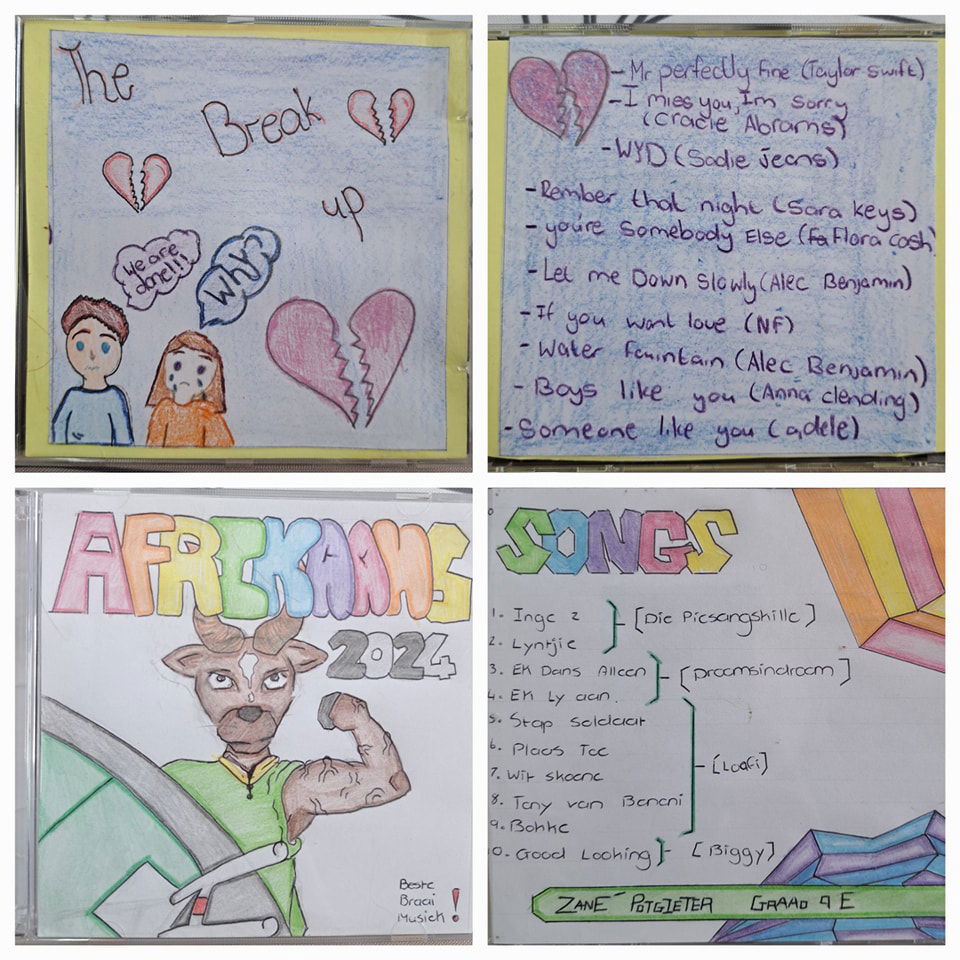 The
Break
up
We are
done!!!
Why?
- Mr perfectly fine (Taylor Swift)
- I mies you, I'm sorry
(Gracie Abrams)
- WYD (Sadie jeans)
- Rember that night (Sara keys)
- you're Somebody Else (fa Flora Cash)
- Let me Down Slowly (Alec Benjamin)
- If you want love (NF)
- Water fountain (Alec Benjamin)
- Boys like you (Anna clending)
- Someone like you (adele)
AFRIKAANS
2024
Beste
Braai
Musiek!
SONGS
1. Inge 2
2. Lyntjie
[Die Piesangskille]
3. Ek Dans Alleen
4. Ek Ly aan.
[Droomsindroom]
5. Stap Soldaat
6. Plaas Toe
7. Wit skoene
8. Tony van Benoni
9. Bokke
[Loofi]
0. Good Looking
[Biggy]
ZANÉ POTGIETER GRAAD 9 E